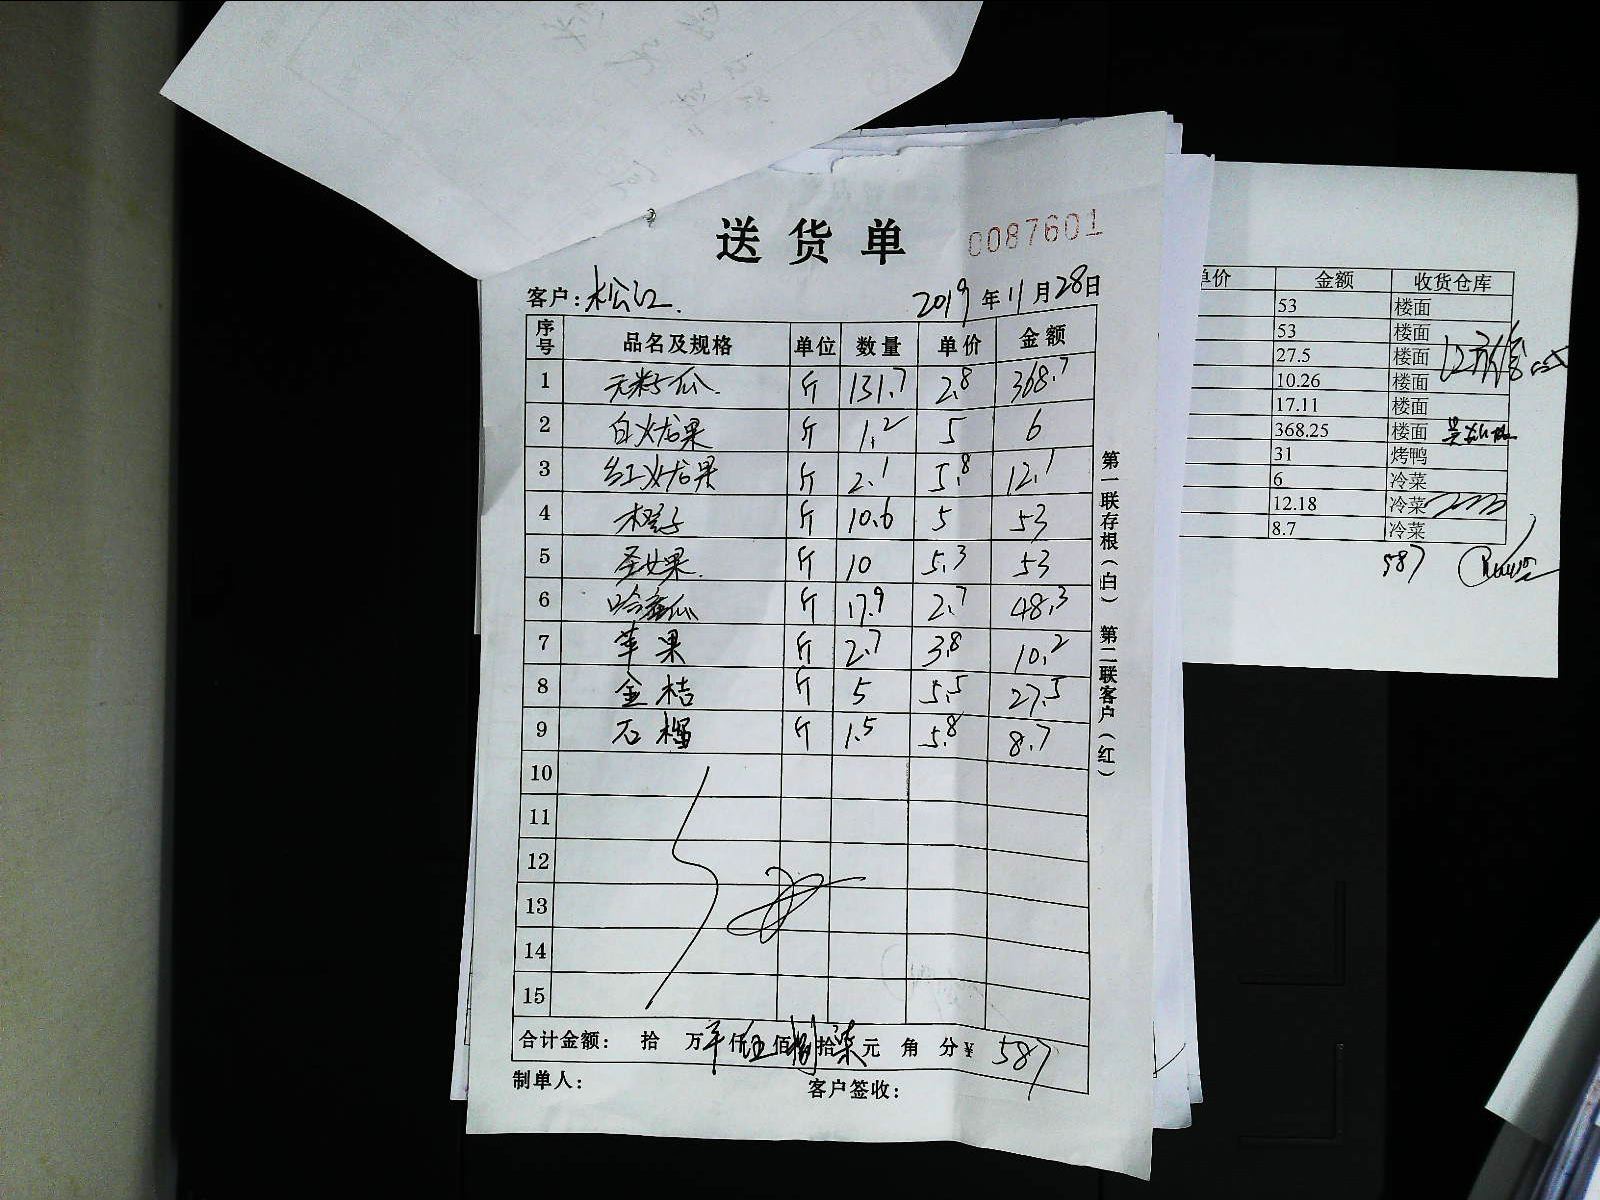 送货单 0087601
客户：松江 2019年11月28日
序号 品名及规格 单位 数量 单价 金额
1 无籽瓜 斤 131.7 2.8 368.7
2 白火龙果 斤 1.2 5 6
3 红火龙果 斤 2.1 5.8 12.1
4 橙子 斤 10.6 5 53
5 圣女果 斤 10 5.3 53
6 哈密瓜 斤 17.9 2.7 48.3
7 苹果 斤 2.7 3.8 10.2
8 金桔 斤 5 5.5 27.5
9 石榴 斤 1.5 5.8 8.7
10
11
12
13
14
15
合计金额： 拾 万 仟伍佰捌拾柒元 角 分¥ 587
制单人： 客户签收：
第一联存根（白） 第二联客户（红）
单价 金额 收货仓库
53 楼面
53 楼面
27.5 楼面
10.26 楼面
17.11 楼面
368.25 楼面
31 烤鸭
6 冷菜
12.18 冷菜
8.7 冷菜
587